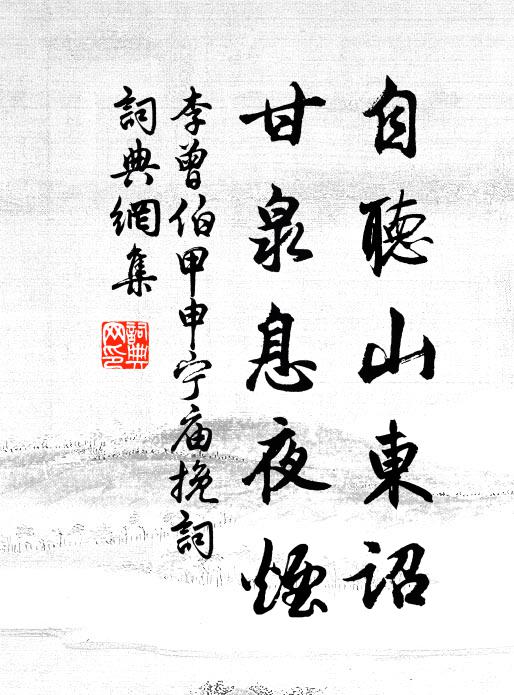 自聽山東詔
甘泉息夜煙
李曾伯甲申宁庙挽詞
詞典網集
詞典网印